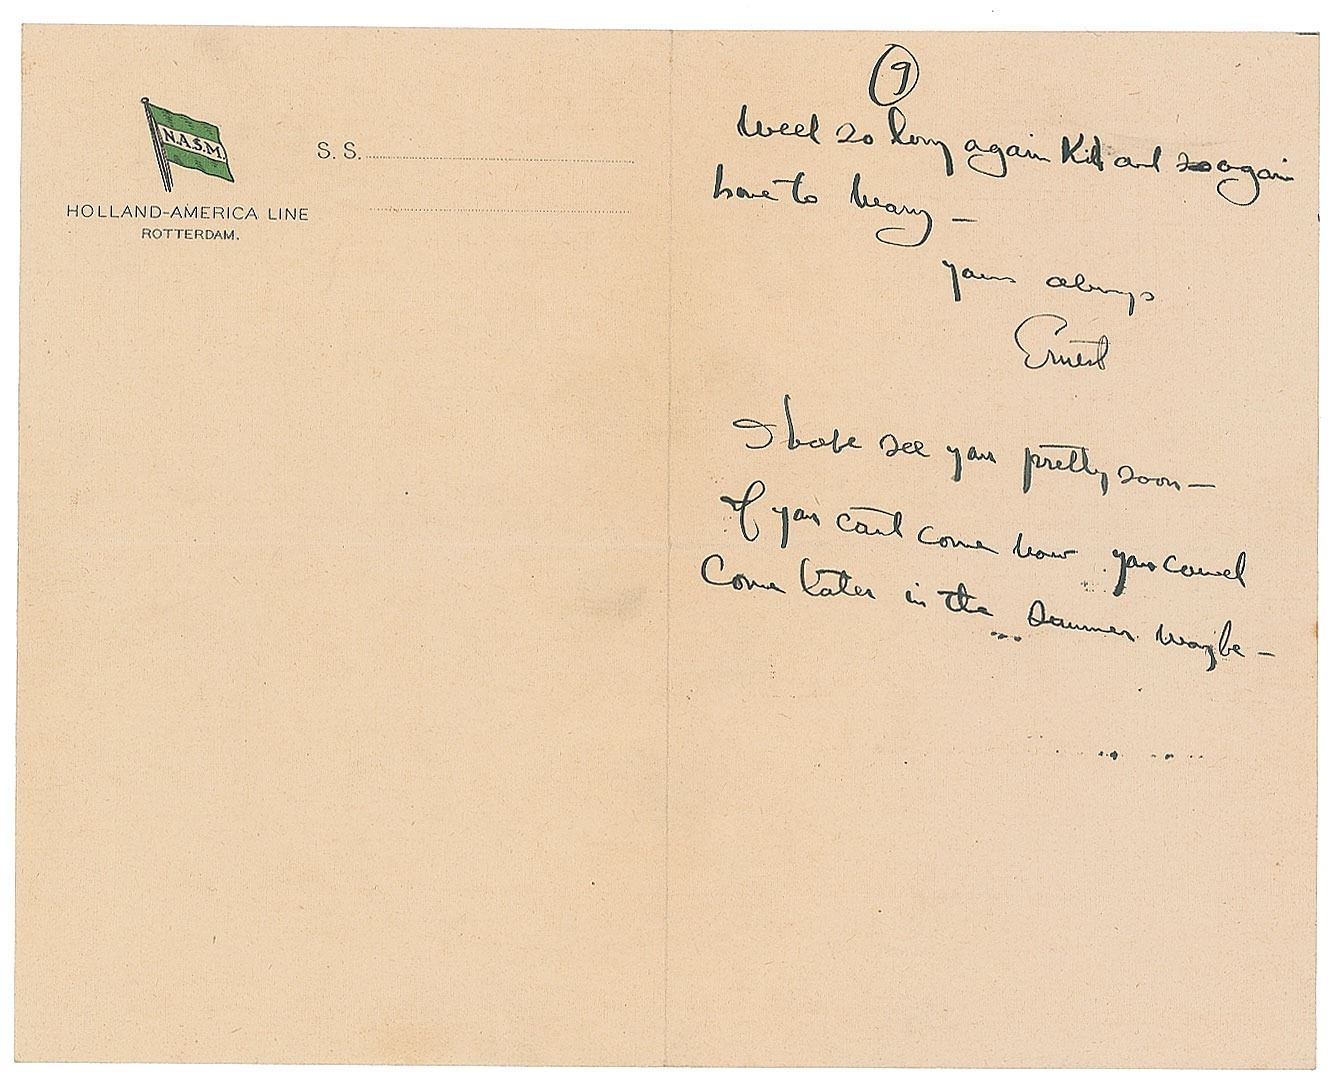 N.A.S.M.
HOLLAND-AMERICA LINE
ROTTERDAM.
S. S.
9
Well so long again Kid and again
love to Mary —
yours always
Ernest
I hope see you pretty soon —
If you can't come now you could
Come later in the Summer maybe —